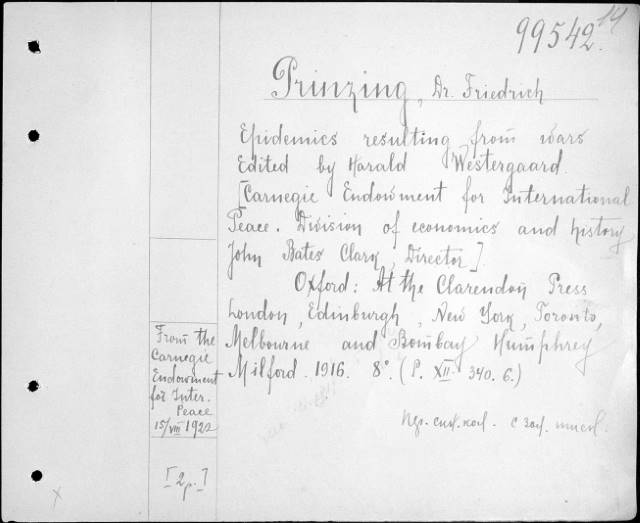 99542.14
Prinzing, Dr. Friedrich
Epidemics resulting from wars
Edited by Harald Westergaard
[Carnegie Endowment for International
Peace. Division of economics and history
John Bates Clark, Director].
Oxford: At the Clarendon Press
London, Edinburgh, New York, Toronto,
Melbourne and Bombay Humphrey
Milford. 1916. 8°. (P. XII. 340. 6.)
From the
Carnegie
Endowment
for Inter.
Peace
15/VIII 1922
[2p.]